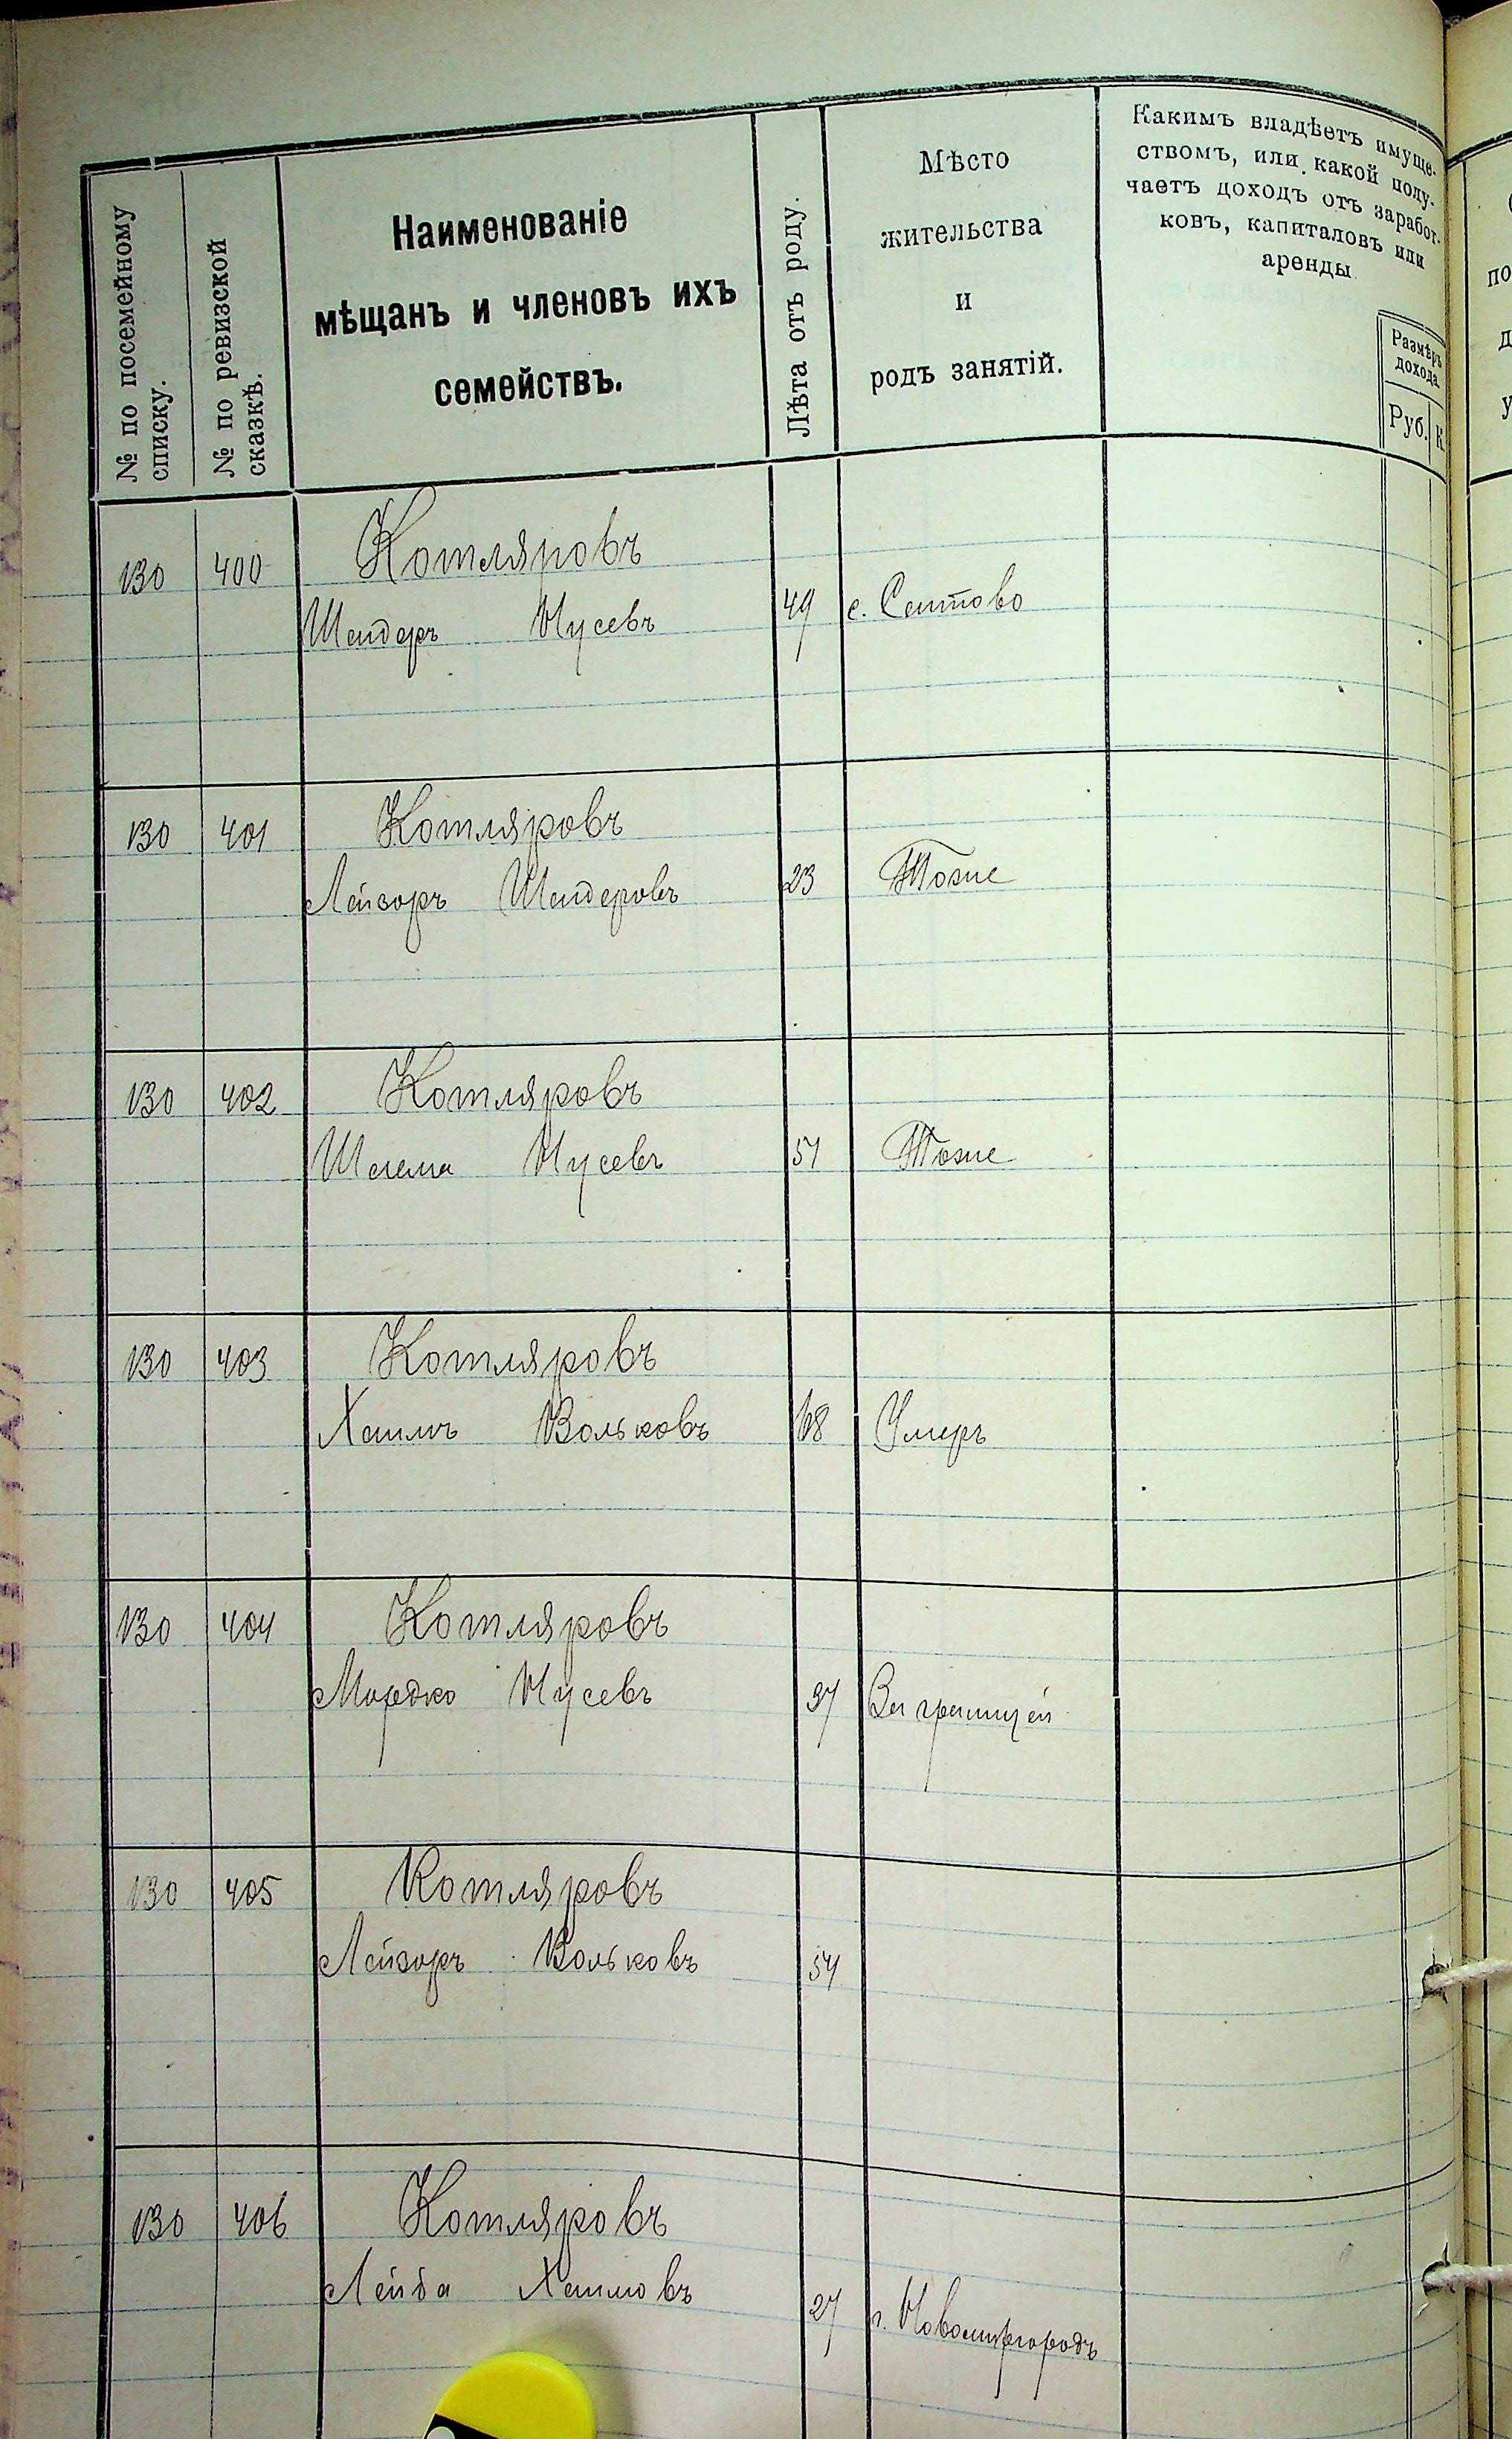 № по посемейному
списку.
№ по ревизской
сказкѣ.
Наименованіе
мѣщанъ и членовъ ихъ
семействъ.
Лѣта отъ роду.
Мѣсто
жительства
и
родъ занятій.
Какимъ владѣетъ имуще-
ствомъ, или какой полу-
чаетъ доходъ отъ заработ-
ковъ, капиталовъ или
аренды
Размѣръ
дохода.
Руб. К
130 400 Котляровъ
Шендеръ Нусевъ 49 с. Сентово
130 401 Котляровъ
Лейзоръ Шендеровъ 23 Тоже
130 402 Котляровъ
Шлема Нусевъ 51 Тоже
130 403 Котляровъ
Хаимъ Вольковъ 68 Умеръ
130 404 Котляровъ
Мордко Нусевъ 37 За границей
130 405 Котляровъ
Лейзоръ Вольковъ 54
130 406 Котляровъ
Лейба Хаимовъ 27 г. Новомиргородъ